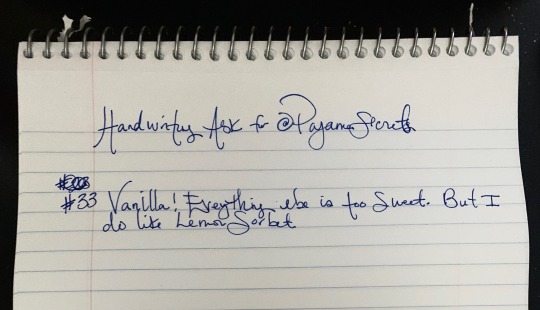 Handwriting Ask for @PajamaSecrets
#33 Vanilla! Everything else is too Sweet. But I
do like Lemon Sorbet